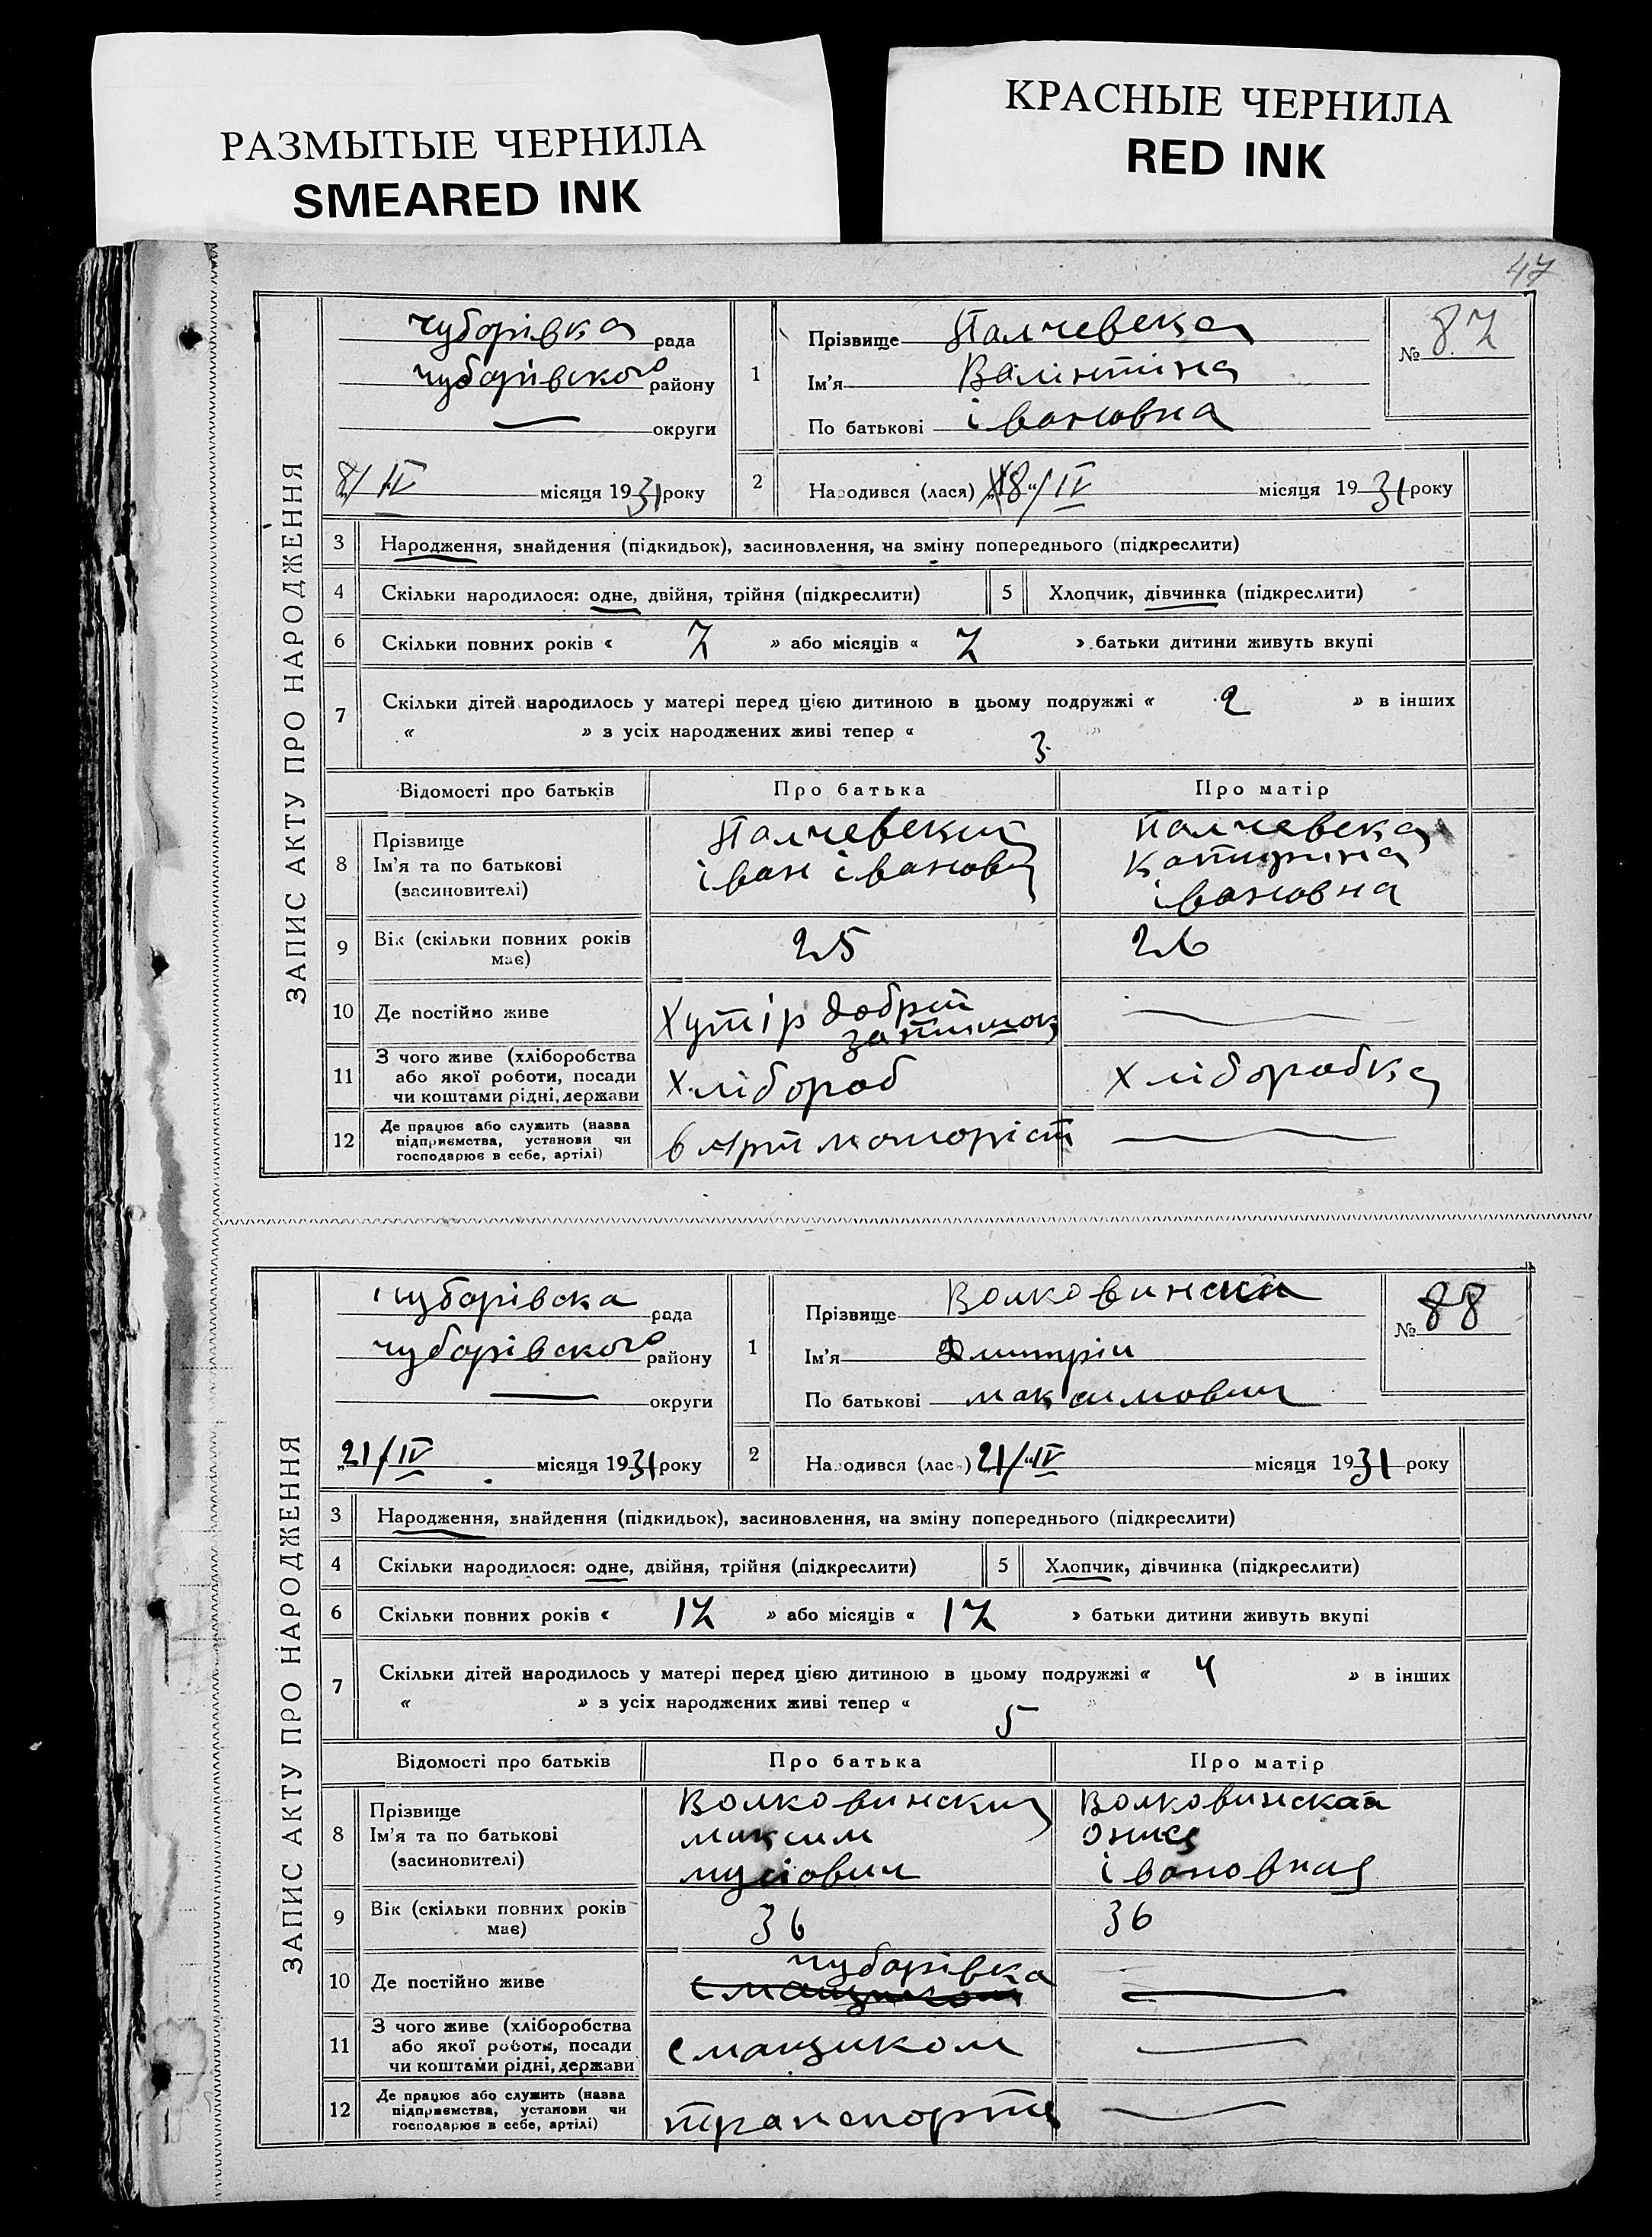 РАЗМЫТЫЕ ЧЕРНИЛА
SMEARED INK
КРАСНЫЕ ЧЕРНИЛА
RED INK
47
ЗАПИС АКТУ ПРО НАРОДЖЕННЯ
чубарівка рада
чубарівского району
— округи
8/IV місяця 1931 року
1 Прізвище Палчевска
Ім'я Валінтіна
По батькові івановна
№ 87
2 Народився (лася) 18/IV місяця 1931 року
3 Народження, знайдення (підкидьок), засиновлення, на зміну попереднього (підкреслити)
4 Скільки народилося: одне, двійня, трійня (підкреслити)
5 Хлопчик, дівчинка (підкреслити)
6 Скільки повних років « 7 » або місяців « 7 » батьки дитини живуть вкупі
7 Скільки дітей народилось у матері перед цією дитиною в цьому подружжі « 2 » в інших
« » з усіх народжених живі тепер « 3 »
Відомості про батьків Про батька Про матір
8 Прізвище
Ім'я та по батькові
(засиновителі)
Палчевский
іван іванович
Палчевска
івановна
9 Вік (скільки повних років
має)
25 26
10 Де постійно живе
Хутір добрий
затишок
—
11 З чого живе (хліборобства
або якої роботи, посади
чи коштами рідні, держави
Хлібороб Хліборобка
12 Де працює або служить (назва
підприємства, установи чи
господарює в себе, артілі)
в арт —
ЗАПИС АКТУ ПРО НАРОДЖЕННЯ
чубарівска рада
чубарівского району
— округи
21/IV місяця 1931 року
1 Прізвище Волковинский
Ім'я Дмитрій
По батькові максимович
№ 88
2 Народився (лася) 21/IV місяця 1931 року
3 Народження, знайдення (підкидьок), засиновлення, на зміну попереднього (підкреслити)
4 Скільки народилося: одне, двійня, трійня (підкреслити)
5 Хлопчик, дівчинка (підкреслити)
6 Скільки повних років « 17 » або місяців « 17 » батьки дитини живуть вкупі
7 Скільки дітей народилось у матері перед цією дитиною в цьому подружжі « 4 » в інших
« » з усіх народжених живі тепер « 5 »
Відомості про батьків Про батька Про матір
8 Прізвище
Ім'я та по батькові
(засиновителі)
Волковинский
максим
мусіович
Волковинская
івановная
9 Вік (скільки повних років
має)
36 36
10 Де постійно живе
чубарівка
—
11 З чого живе (хліборобства
або якої роботи, посади
чи коштами рідні, держави
смащиком —
12 Де працює або служить (назва
підприємства, установи чи
господарює в себе, артілі)
транспорті —